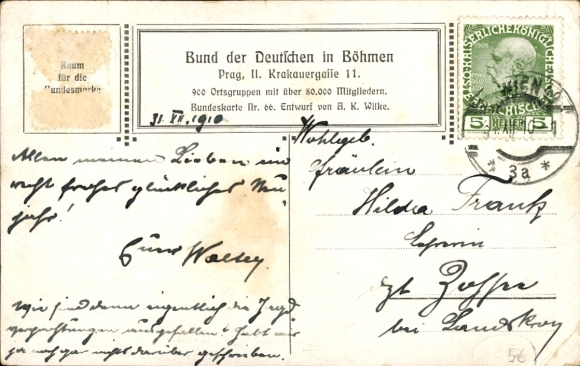 Raum
für die
Bundesmarke
Bund der Deutschen in Böhmen
Prag, II. Krakauergasse 11.
900 Ortsgruppen mit über 80.000 Mitgliedern.
Bundeskarte Nr. 66. Entwurf von A. K. Wilke.
31. XII. 1910
1908
5 HELLER 5
WIEN
XII 10
* 3a *
Allen meinen Lieben ein
recht frohes glückliches Neu-
jahr!
Euer
Wie sind denn eigentlich die Jagd
verpachtungen ausgefallen? Habt mir
ja noch gar nichts darüber geschrieben.
Wohlgeb.
Fräulein
Hilda Frank
Lehrerin
bei Landskron
5€